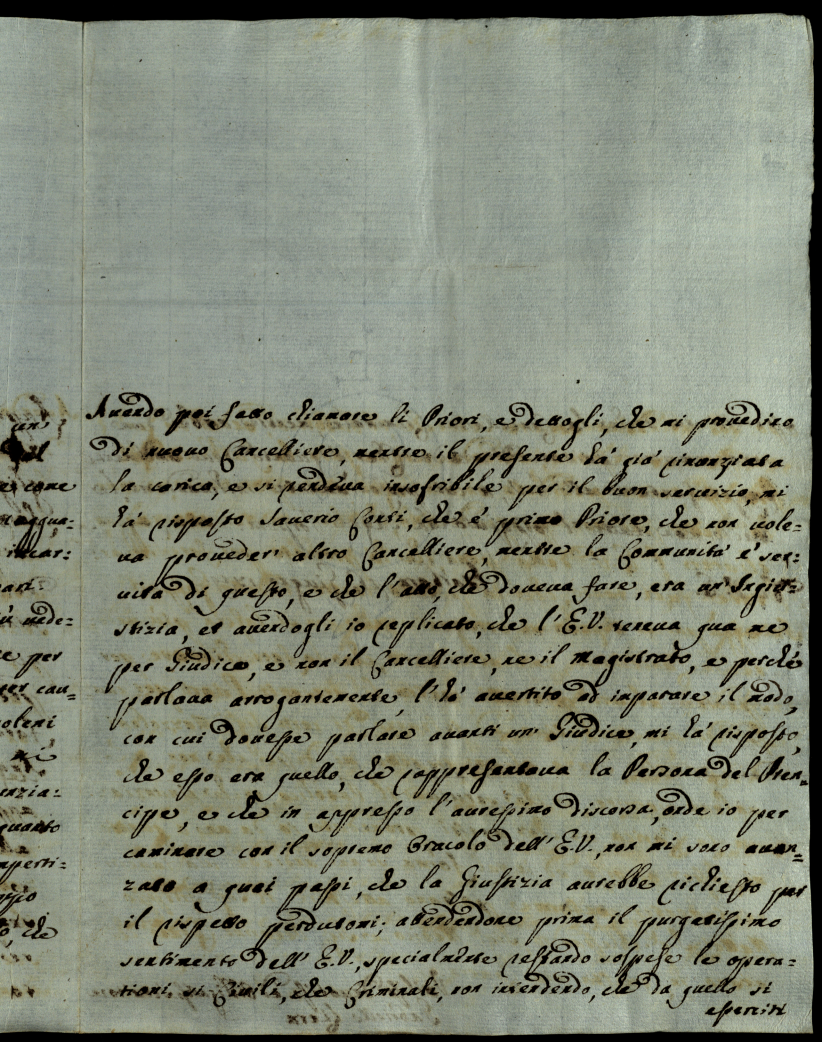 un
e come
maggua=
incar=
pari=
ù mede=
e per
per cau=
soleni
mi
enzia=
quanto
imperti=
o, che
Auendo poi fatto chiamare li Priori, e dettogli, che mi prouedino
di nuouo Cancelliere, mentre il presente há giá rinonziata
la carica, e si rendeua insofribile per il buon seruizio, mi
há risposto Sauerio Conti, che é primo Priore, che non uole=
ua proueder' altro Cancelliere, mentre la Communitá é ser=
uita di questo, e che l'atto, che doueua fare, era un' Ingiu=
stizia, et auendogli io replicato, che l'E.V. teneua qua me
per Giudice, e non il Cancelliere, ne il Magistrato, e perché
parlaua arrogantemente, l'hó auertito ad imparare il modo,
con cui douesse parlare auanti un' Giudice, mi há risposto,
che esso era quello, che rappresentaua la Persona del Pren=
cipe, e che in appresso l'auressimo discorsa, onde io per
caminare con il sopremo Oracolo dell' E.V., non mi sono auan=
zato a quei passi, che la Giustizia aurebbe richiesto per
il rispetto perdutomi; attendendone prima il purgatissimo
sentimento dell' E.V., specialmente restando sospese le opera=
tioni, si Ciuili, che Criminali, non intendendo, che da quello si
esserciti